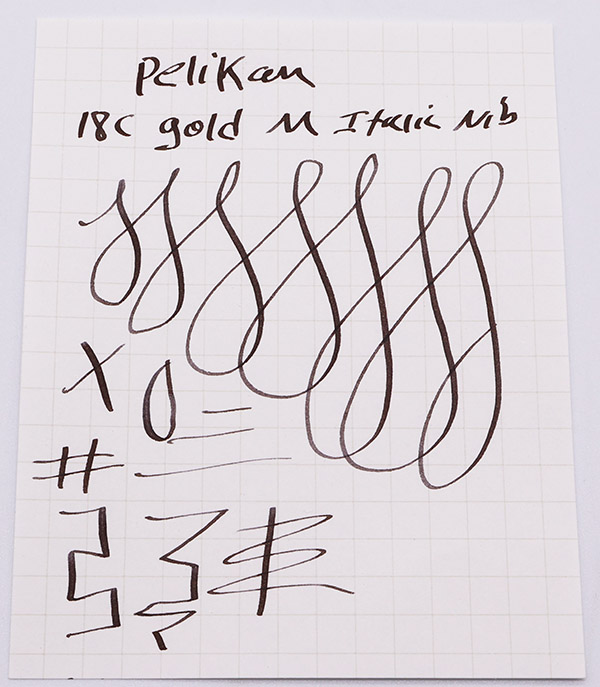 Pelikan
18C gold M Italic Nib
X O =
#